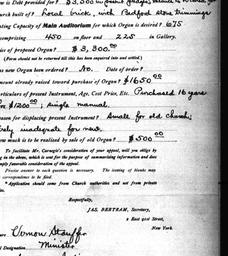 is Debt provided for? $3,000
Church built of? Local brick, with Bedford stone trimmings
Seating Capacity of Main Auditorium for which Organ is desired? 675
comprising 450 on floor and 225 in Gallery.
Price of proposed Organ? $3,300.00
(Form should not be returned till this has been enquired into and settled)
new Organ been ordered? No. Date of order?
amount already raised toward purchase of Organ? $1650.00
Particulars of present Instrument, Age, Cost Price, Etc. Purchased 16 years
for $1200.00; single manual.
Reason for displacing present Instrument? Small for old church;
inadequate for new.
much is to be realized by sale of old Organ? $500.00
To facilitate Mr. Carnegie's consideration of your appeal, will you oblige by
in the above, which is sent for the purpose of summarizing information and does
imply favorable consideration of the appeal.
Precise answer to each question is necessary. The issuing of blanks may
correspondence to be required.
* Application should come from Church authorities and not from private
Respectfully,
JAS. BERTRAM, Secretary,
2 East 91st Street,
New York.
Vernon Stauffer
Designation. Minister